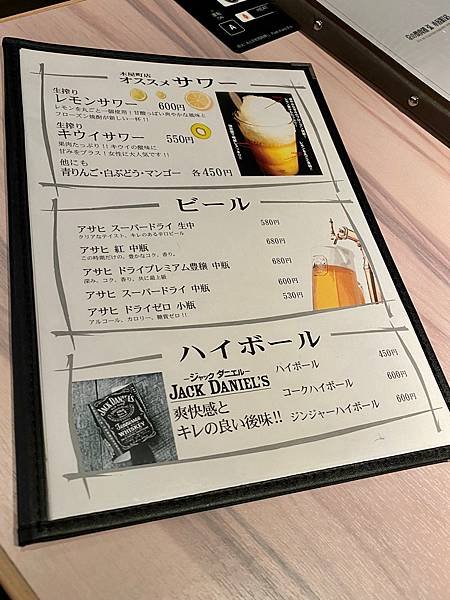 木屋町店
オススメサワー
生搾り
レモンサワー 600円
レモンを丸ごと一個使用!甘酸っぱい爽やかな風味と
フローズン感が新しい一杯!!
生搾り
キウイサワー 550円
果肉たっぷり!!キウイの酸味に
甘みをプラス!女性に大人気です!!
他にも
青りんご・白ぶどう・マンゴー 各450円
ビール
アサヒ スーパードライ 生中 580円
クリアなテイスト、キレのある辛口ビール
アサヒ 紅 中瓶 680円
この時期だけの、豊かなコク、香り。
アサヒ ドライプレミアム豊醸 中瓶 680円
深み、コク、香り、共に最上級
アサヒ スーパードライ 中瓶 600円
アサヒ ドライゼロ 小瓶 530円
アルコール、カロリー、糖質ゼロ!!
ハイボール
ージャック ダニエルー
JACK DANIEL'S
爽快感と
キレの良い後味!!
ハイボール 450円
コークハイボール 600円
ジンジャーハイボール 600円
JACK DANIEL'S
Tennessee
WHISKEY